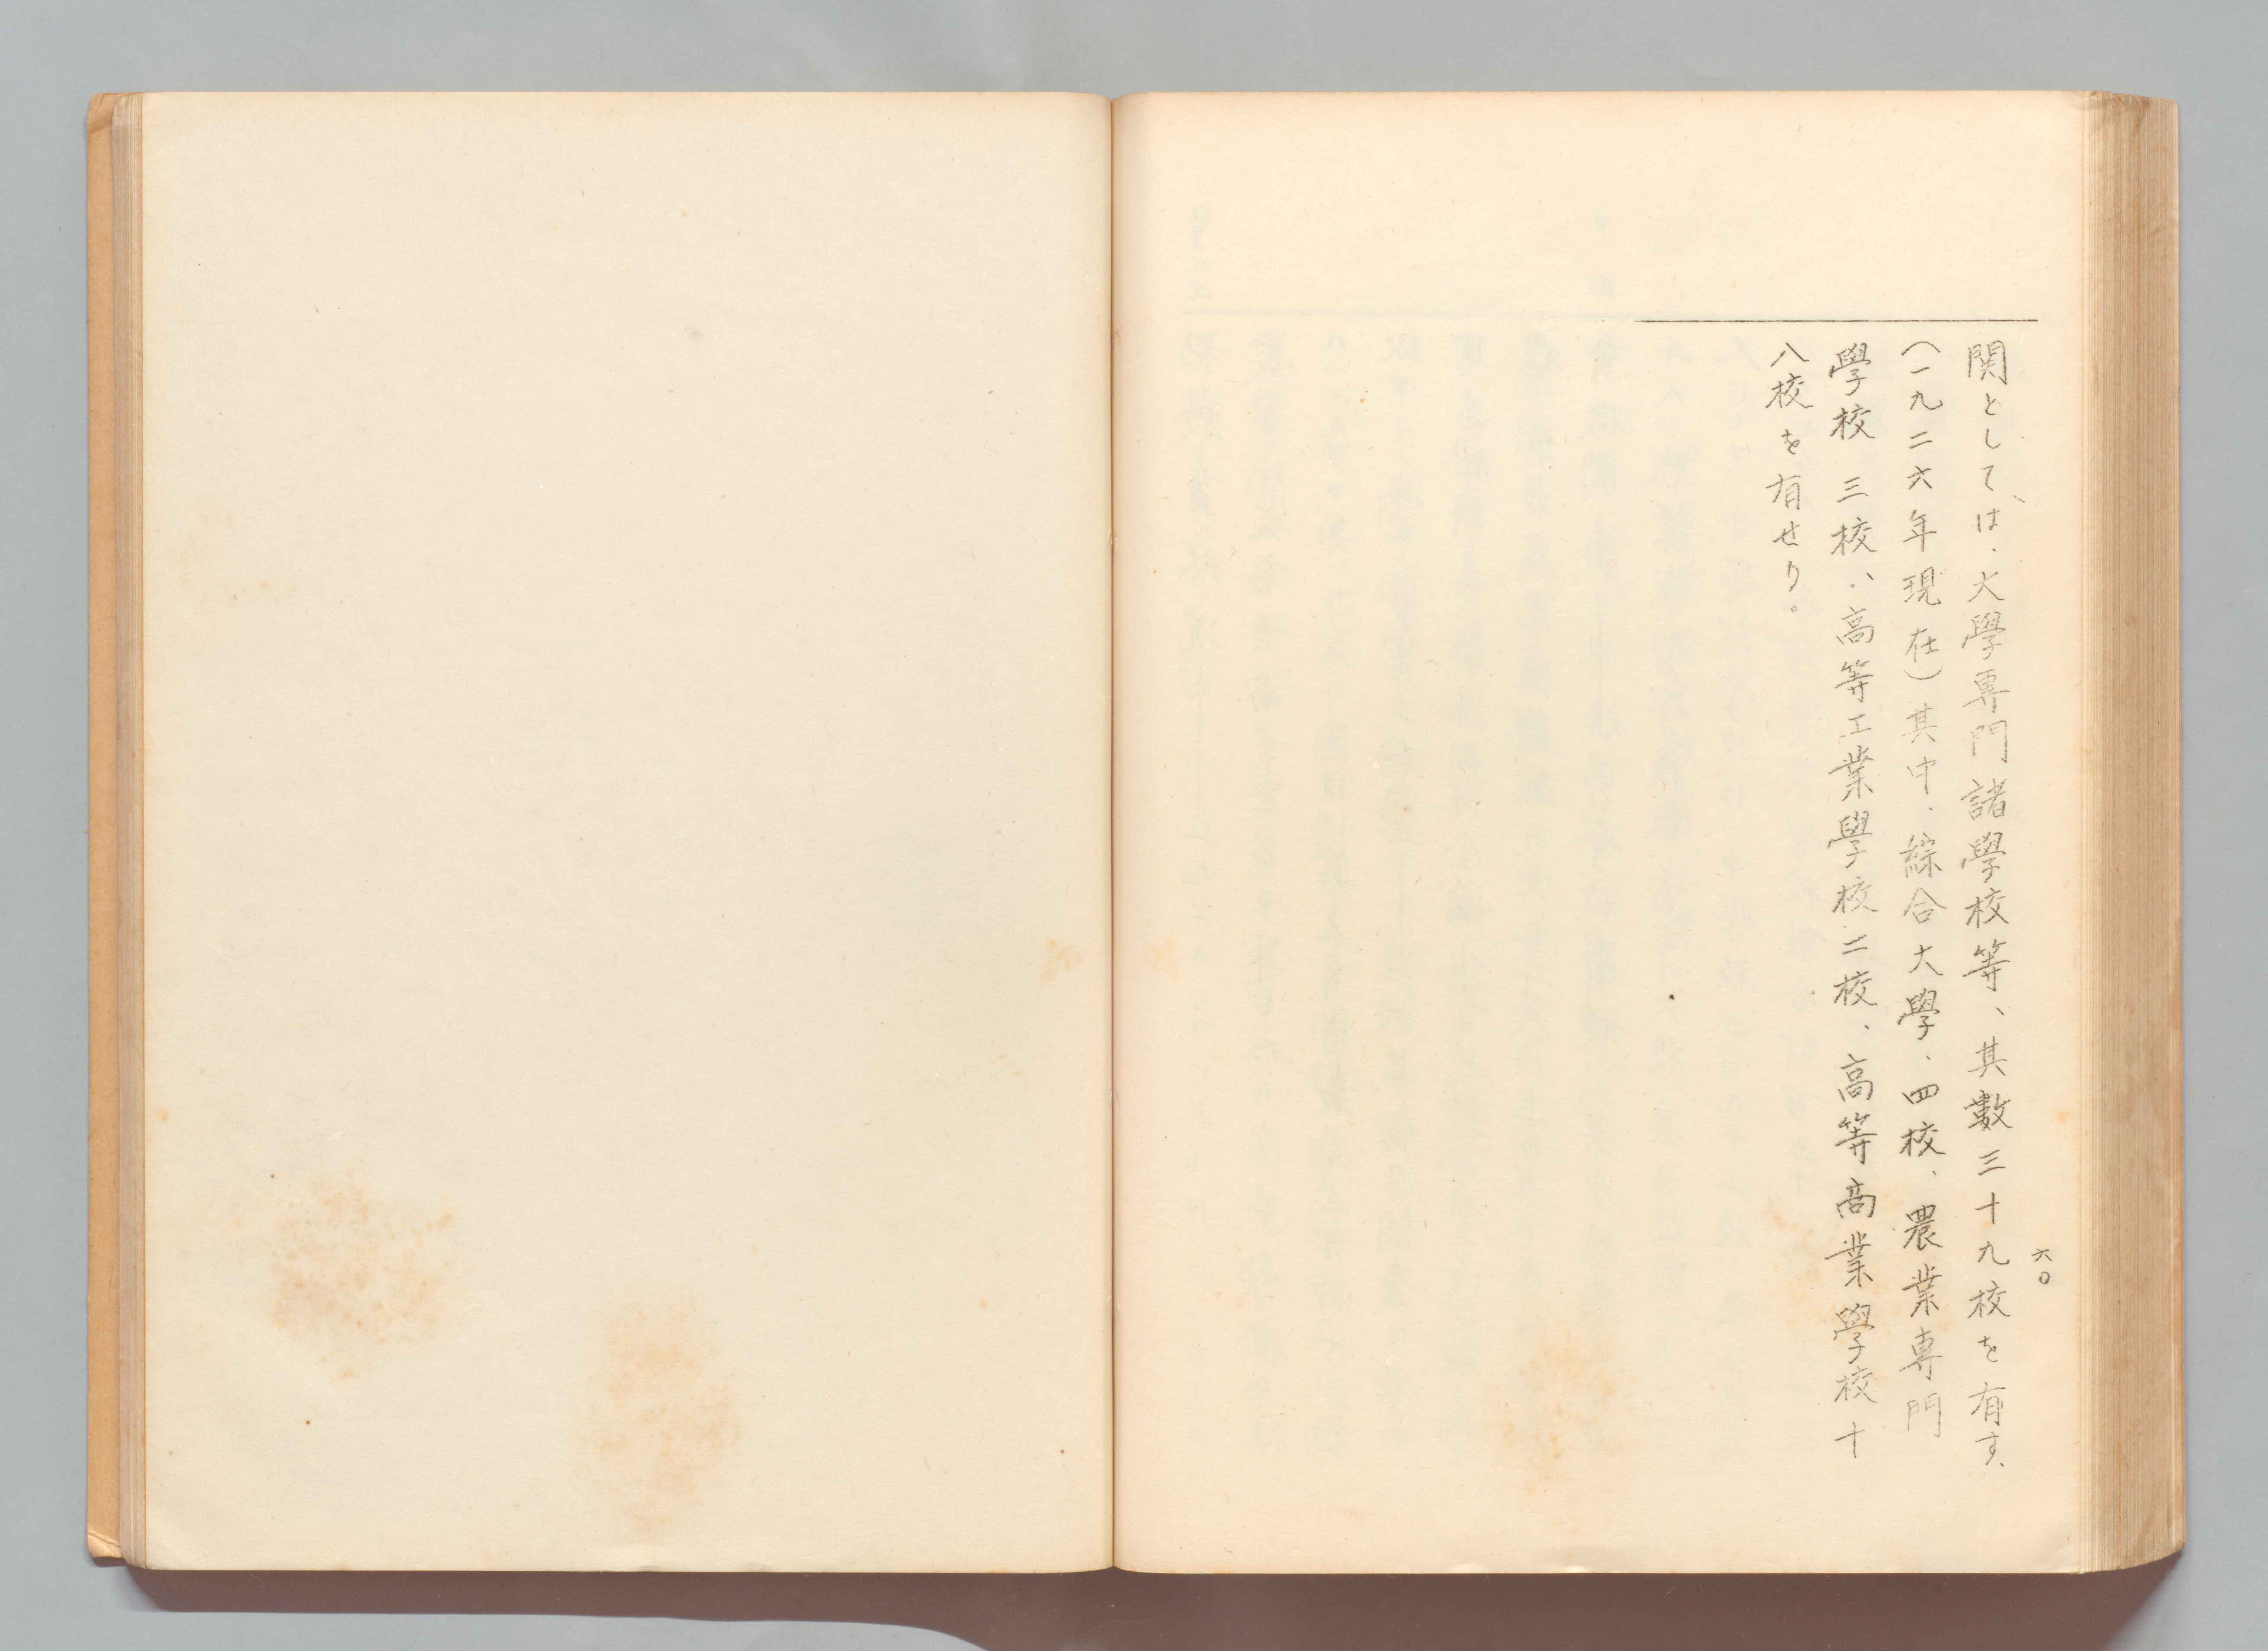 六〇
関としては、大學專門諸學校等、其數三十九校を有す、
(一九二六年現在)其中、綜合大學、四校、農業專門
學校 三校、高等工業學校二校、高等商業學校十
八校を有せり。